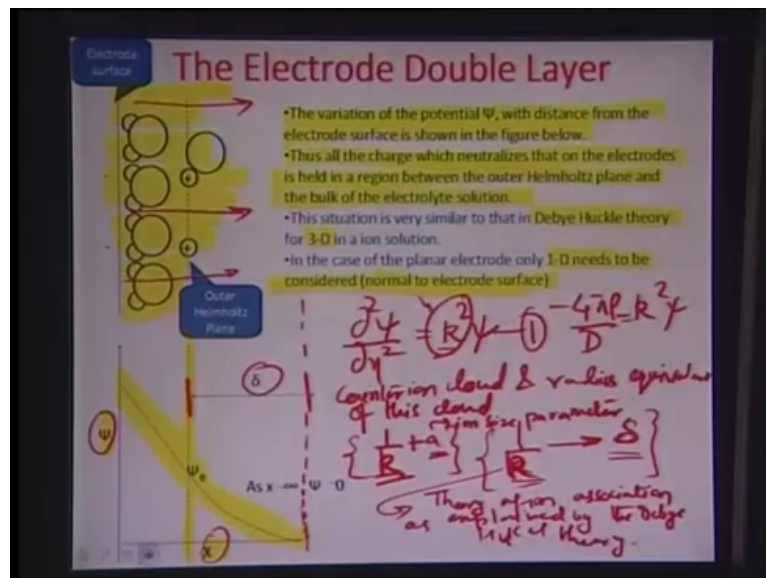 Electrode
surface
The Electrode Double Layer
•The variation of the potential Ψ, with distance from the
electrode surface is shown in the figure below.
•Thus all the charge which neutralizes that on the electrodes
is held in a region between the outer Helmholtz plane and
the bulk of the electrolyte solution.
•This situation is very similar to that in Debye Huckle theory
for 3-D in a ion solution.
•In the case of the planar electrode only 1-D needs to be
considered (normal to electrode surface)
Outer
Helmholtz
Plane
Counter ion cloud & radius equivalent
of this cloud
ion size parameter
{ 1/k + a } { 1/k → δ }
Theory of ion association
as explained by the Debye
theory.
δ
Ψ
Ψ₀
As x→∞ Ψ→0
x